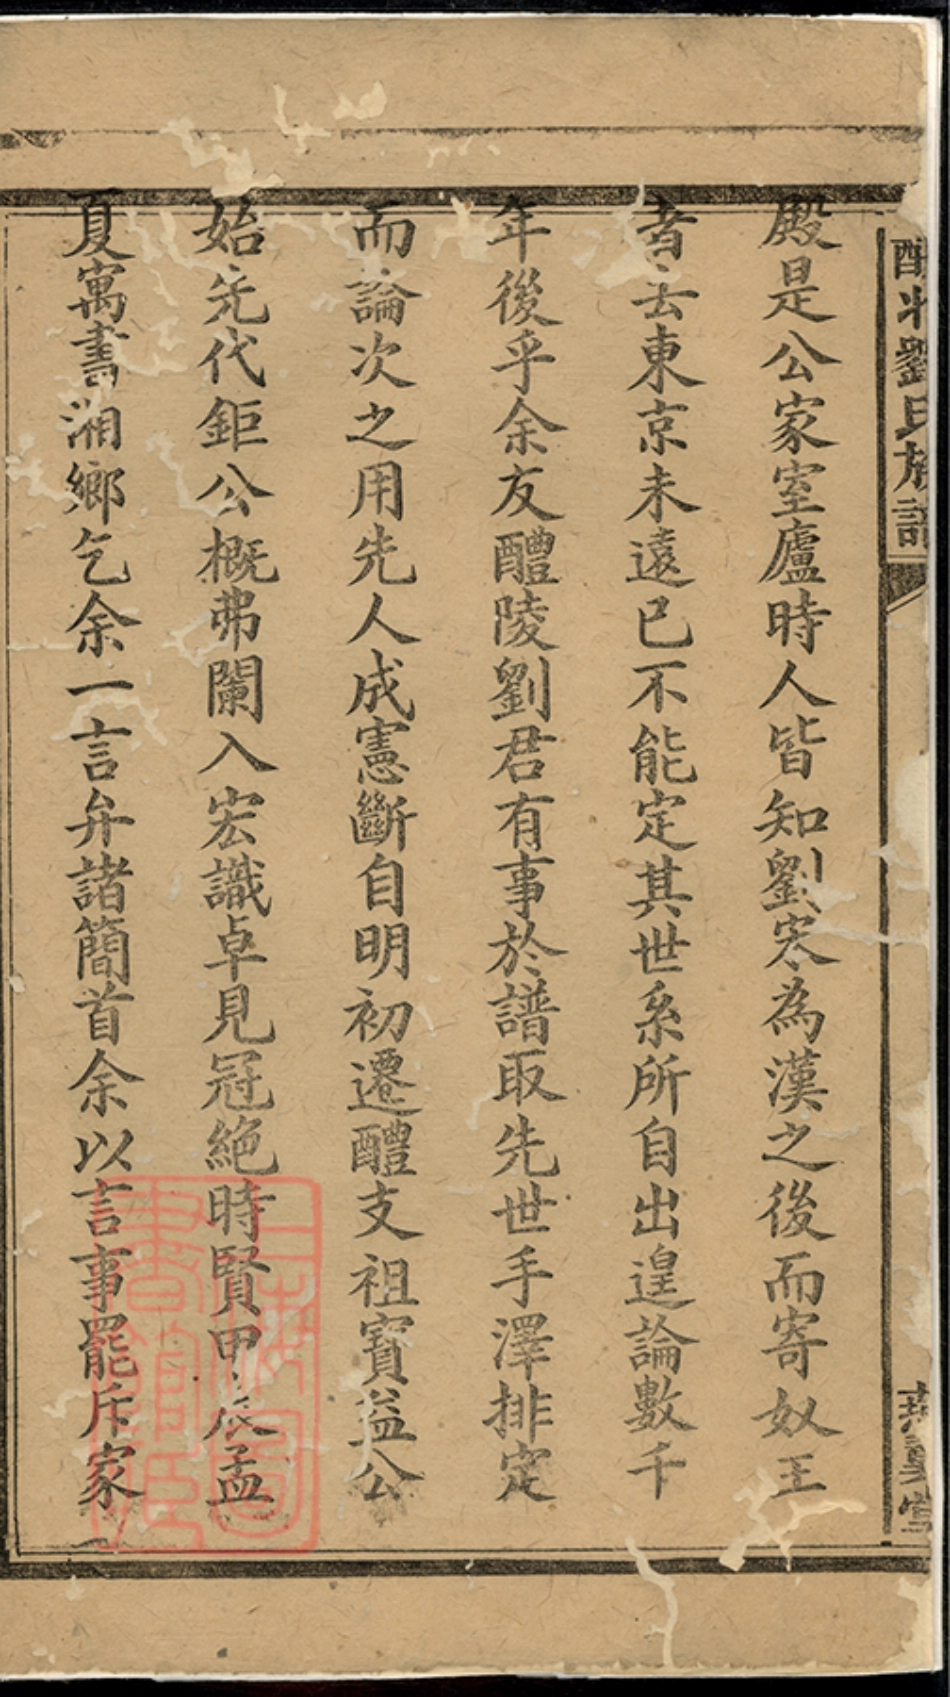 劉氏族譜
殿是公家室廬時人皆知劉寔為漢之後而寄奴王
者去東京未遠已不能定其世系所自出遑論數千
年後乎余友醴陵劉君有事於譜取先世手澤排定
而論次之用先人成憲斷自明初遷醴支祖寶益公
始先代鉅公概弗闌入宏識卓見冠絶時賢甲辰孟
夏寓書湘鄉乞余一言弁諸簡首余以言事罷斥家
上海圖書館藏